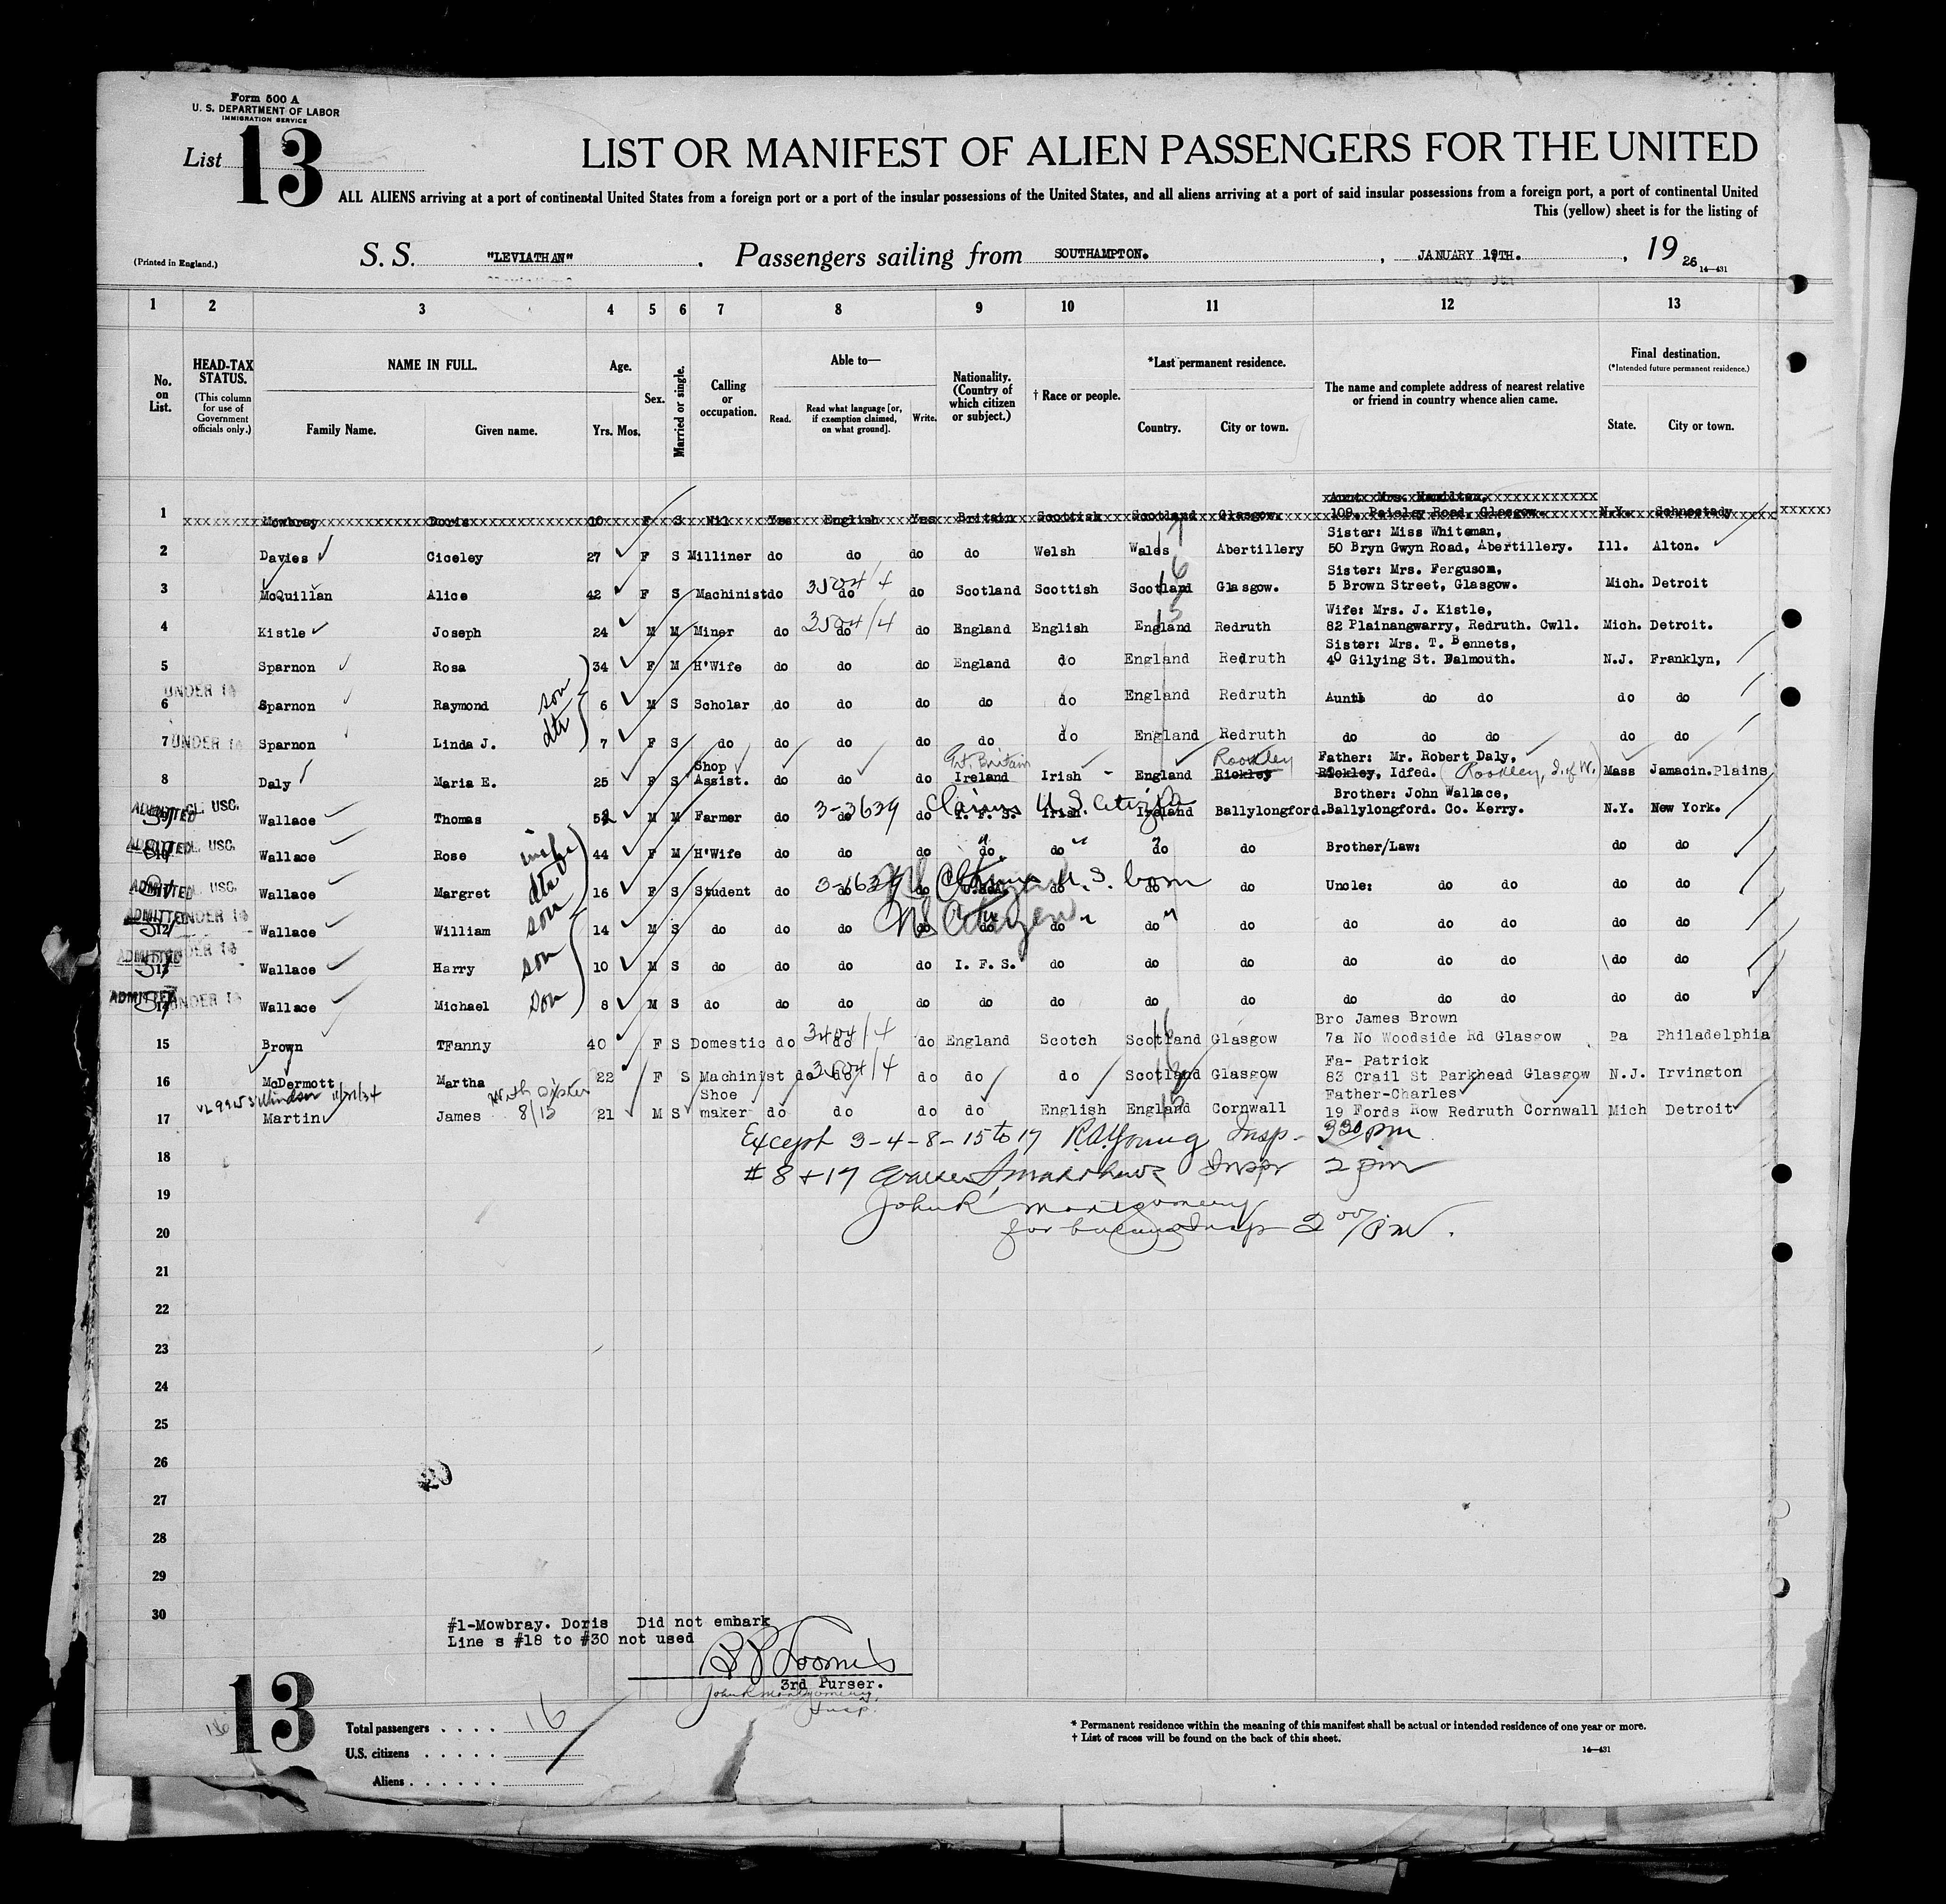 Form 500 A
U. S. DEPARTMENT OF LABOR
IMMIGRATION SERVICE
List 13
LIST OR MANIFEST OF ALIEN PASSENGERS FOR THE UNITED
ALL ALIENS arriving at a port of continental United States from a foreign port or a port of the insular possessions of the United States, and all aliens arriving at a port of said insular possessions from a foreign port, a port of continental United
This (yellow) sheet is for the listing of
(Printed in England.)
S. S. "LEVIATHAN" . Passengers sailing from SOUTHAMPTON. , JANUARY 19TH. , 19 26
14—431
1 2 3 4 5 6 7 8 9 10 11 12 13
No. on List.
HEAD-TAX STATUS.
(This column for use of Government officials only.)
NAME IN FULL.
Family Name. Given name.
Age.
Yrs. Mos.
Sex.
Married or single.
Calling or occupation.
Able to—
Read. Read what language [or, if exemption claimed, on what ground]. Write.
Nationality. (Country of which citizen or subject.)
† Race or people.
*Last permanent residence.
Country. City or town.
The name and complete address of nearest relative or friend in country whence alien came.
Final destination.
(*Intended future permanent residence.)
State. City or town.
Aunt: Mrs. Hamilton,
1 Mowbray Doris 10 F S Nil Yes English Yes Britain Scottish Scotland Glasgow. 109. Paisley Road, Glasgow. N.Y. Schnectady
Sister: Miss Whiteman,
2 Davies Ciceley 27 F S Milliner do do do do Welsh Wales Abertillery 50 Bryn Gwyn Road, Abertillery. Ill. Alton.
Sister: Mrs. Ferguson,
3 McQuillan Alice 42 F S Machinist do do do Scotland Scottish Scotland Glasgow. 5 Brown Street, Glasgow. Mich. Detroit
Wife: Mrs. J. Kistle,
4 Kistle Joseph 24 M M Miner do do do England English England Redruth 82 Plainangwarry, Redruth. Cwll. Mich. Detroit.
Sister: Mrs. T. Bennets,
5 Sparnon Rosa 34 F M H'Wife do do do England do England Redruth 40 Gilying St. Falmouth. N.J. Franklyn,
UNDER 16
6 Sparnon Raymond son 6 M S Scholar do do do do do England Redruth Aunt: do do do do
7 UNDER 16 Sparnon Linda J. dtr 7 F S do do do do do do England Redruth do do do do do
Shop Gt. Britain Rookley Father: Mr. Robert Daly,
8 Daly Maria E. 25 F S Assist. do do do Ireland Irish England Rickley Rickley, Idfed. (Rookley, I. of W.) Mass Jamacin.Plains
Brother: John Wallace,
ADMITTED USC.
Wallace Thomas M M Farmer do 3-3639 do do I. F. S. Irish Claims U.S. Citizen Ireland Ballylongford. Ballylongford. Co. Kerry. N.Y. New York.
ADMITTED USC.
Wallace Rose wife 44 F M H'Wife do do do do do do do Brother/Law: do do
ADMITTED USC.
Wallace Margret dtr 16 F S Student do do do U.S. born do do do Uncle: do do do do
ADMITTED UNDER 16
12 Wallace William son 14 M S do do do do US Citizen do do do do do do do do do
ADMITTED UNDER 16
13 Wallace Harry son 10 M S do do do do I. F. S. do do do do do do do do
ADMITTED UNDER 16
14 Wallace Michael son 8 M S do do do do do do do do do do do do do
Bro James Brown
15 Brown TFanny 40 F S Domestic do do do England Scotch Scotland Glasgow 7a No Woodside Rd Glasgow Pa Philadelphia
Fa- Patrick
16 McDermott Martha 22 F S Machinist do do do do do Scotland Glasgow 83 Crail St Parkhead Glasgow N.J. Irvington
With sister Shoe Father-Charles
17 Martin James 8/13 21 M S maker do do do do English England Cornwall 19 Fords Row Redruth Cornwall Mich Detroit
Except 3-4-8-15 to 17 R.A. Young Insp. 3 30 pm
18 #8+17 Insp 2 pm
19 John R. Montgomery
20 for Insp 2 00/PM.
21
22
23
24
25
26
27
28
29
30
#1-Mowbray. Doris Did not embark
Line s #18 to #30 not used
3rd Purser.
John R Montgomery,
Insp.
13
Total passengers . . . . 16
U.S. citizens . . . . .
Aliens . . . . . .
* Permanent residence within the meaning of this manifest shall be actual or intended residence of one year or more.
† List of races will be found on the back of this sheet.
14—431